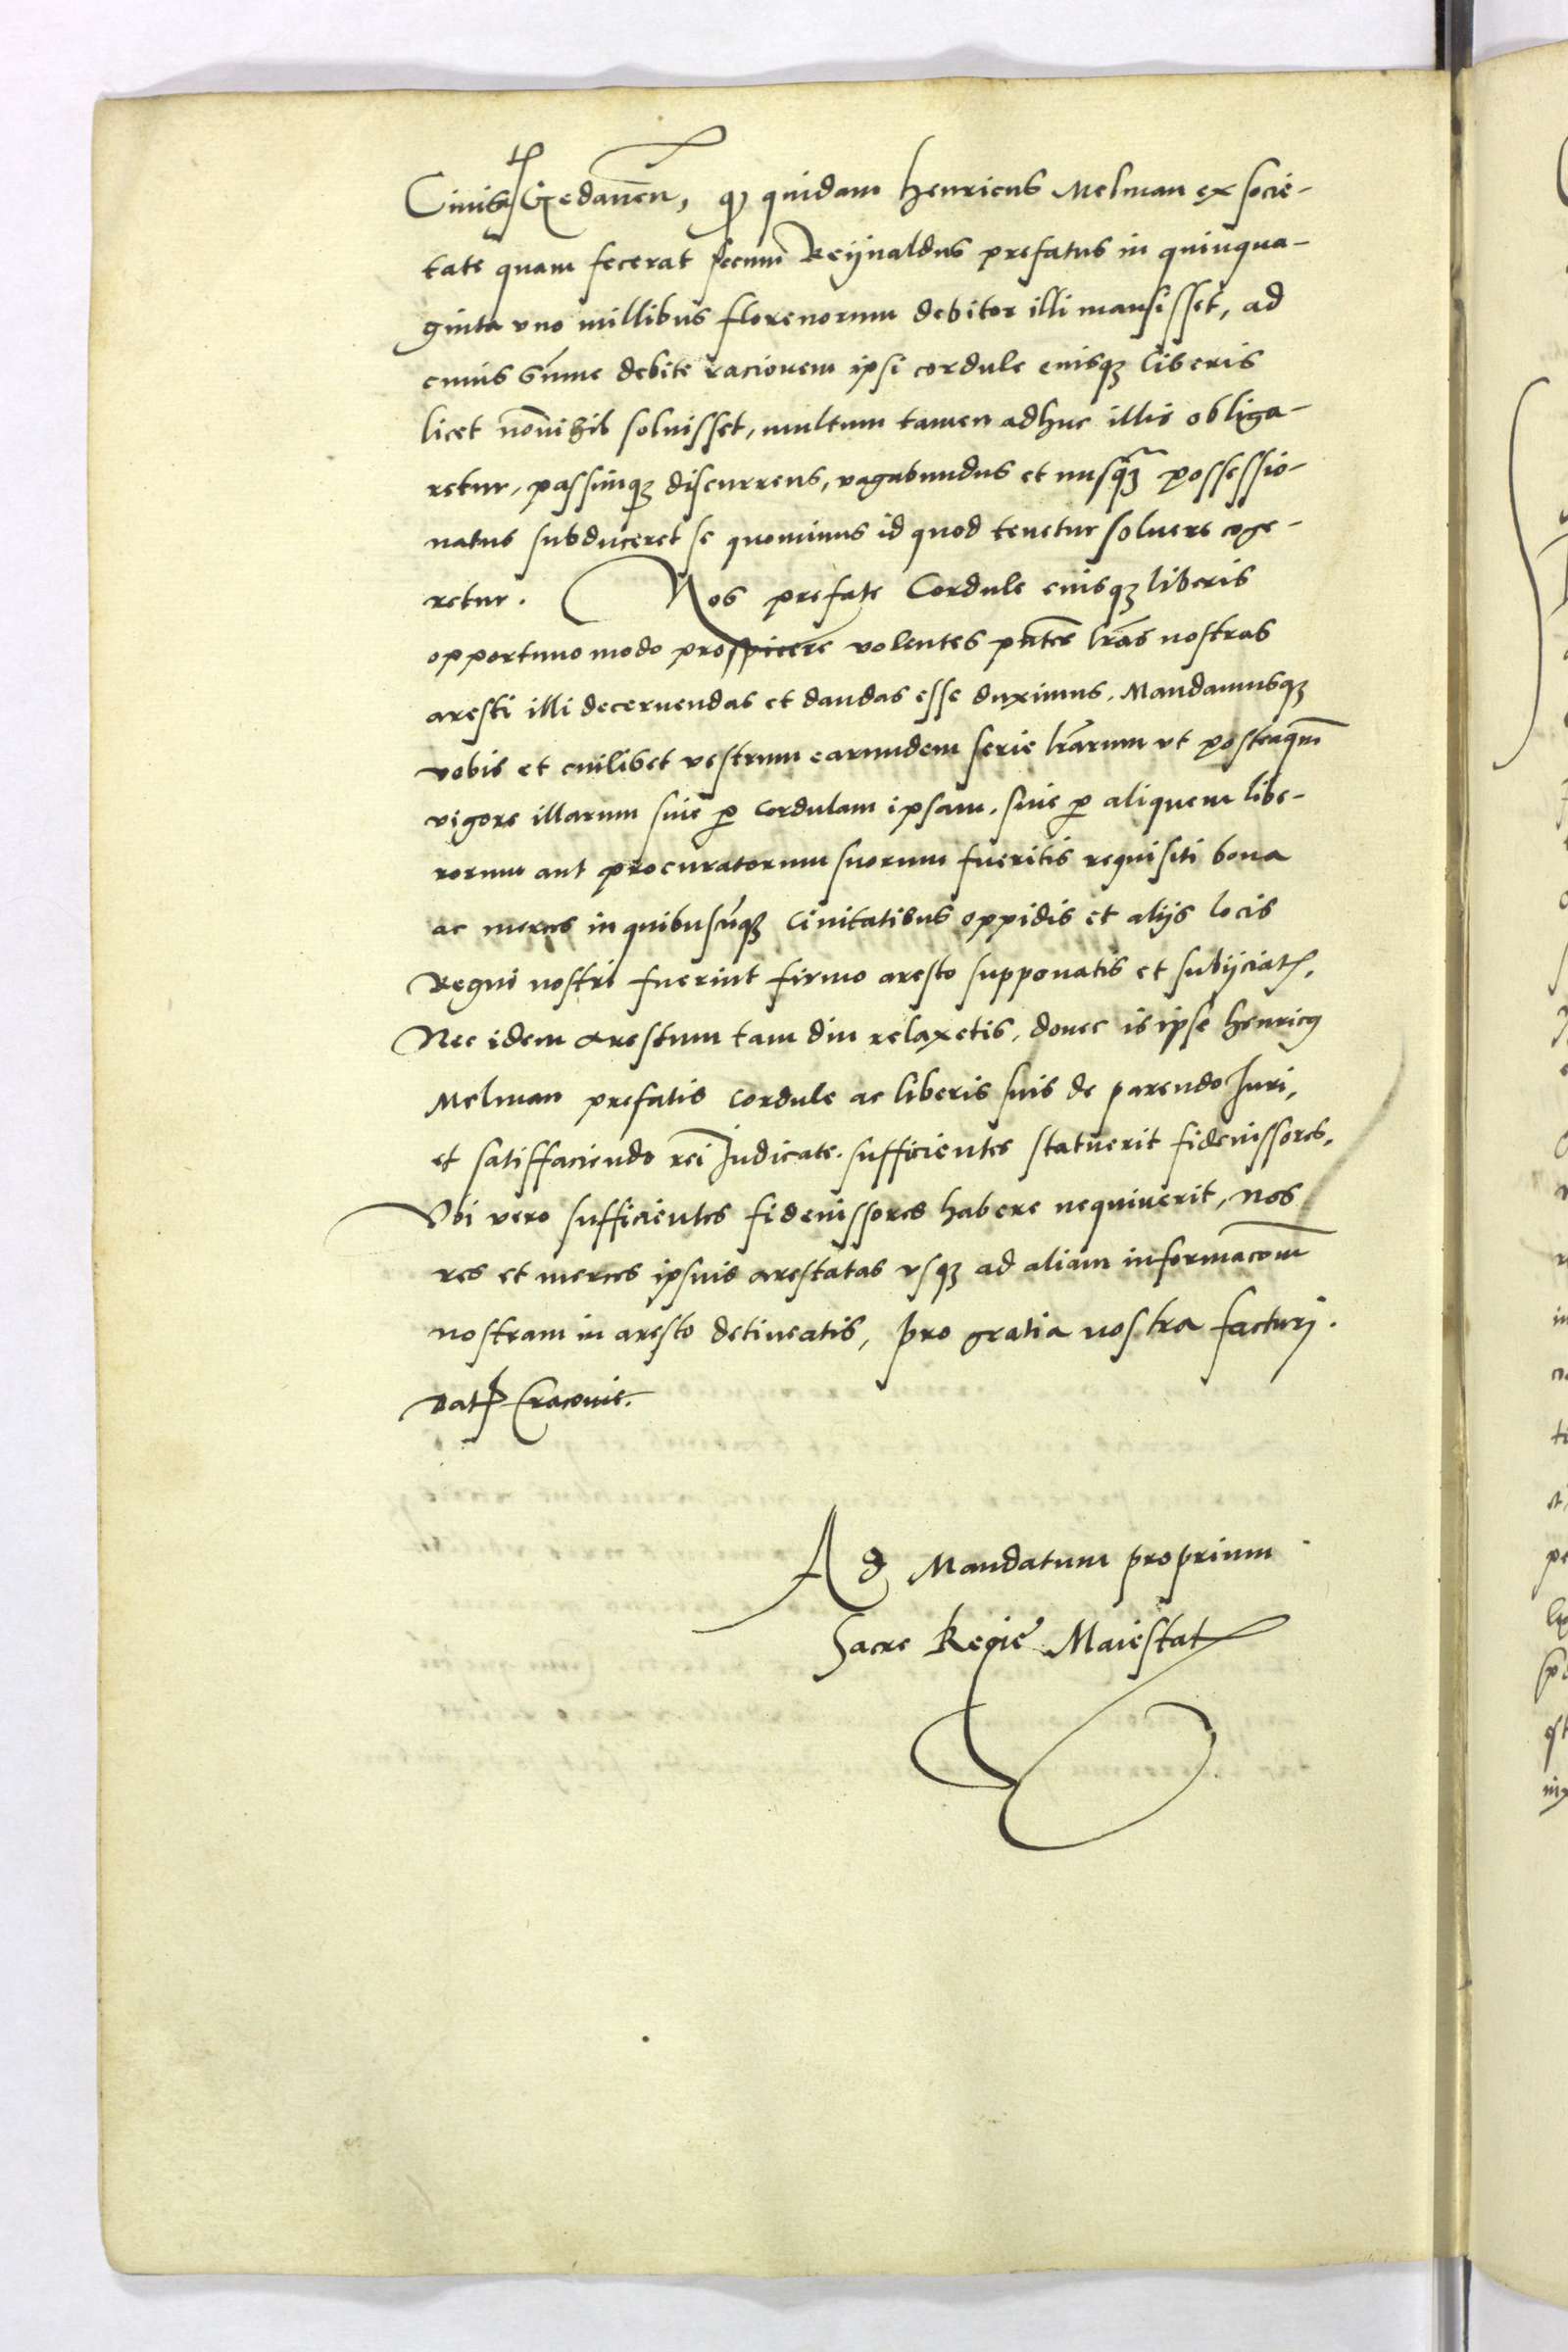 Ciuitatis Gedanen̄, qd quidam Henricus Melman ex socie-
tate quam fecerat secum Reijnaldus prefatus in quinqua-
ginta vno millibus florenorum debitor illi mansisset, ad
cuius sum̄e debite racionem ipsi cordule eiusq3 liberis
licet nōnihil soluisset, multum tamen adhuc illis obliga-
retur, passimq3 discurrens, vagabundus et nusq̃3 possessio-
natus subduceret se quominus id quod tenetur soluere coge-
retur. Nos prefate Cordule eiusq3 liberis
opportuno modo prospicere volentes pñtes lrãs nostras
aresti illi decernendas et dandas esse duximus. Mandamusq3
vobis et cuilibet vestrum earundem serie lrãrum vt posteaqm̄
vigore illarum siue p cordulam ipsam, siue p aliquem libe-
rorum aut procuratorum suorum fueritis requisiti bona
ac merces in quibuscūq3 Ciuitatibus oppidis et alijs locis
Regni nostri fuerint firmo aresto supponatis et subijciatis,
Nec idem arestum tam diu relaxetis, donec is ipse Henricus
Melman prefatis Cordule ac liberis suis de parendo Iuri,
et satisfaciendo rei Iudicate, sufficientes statuerit fideiussores,
Vbi vero sufficientes fideiussores habere nequiuerit, nos
res et merces ipsius arestatas vsq3 ad aliam informacõm
nostram in aresto detineatis, pro gratia nostra facturi.
Dat Cracouie.
Ad Mandatum proprium
Sacre Regie Maiestatis